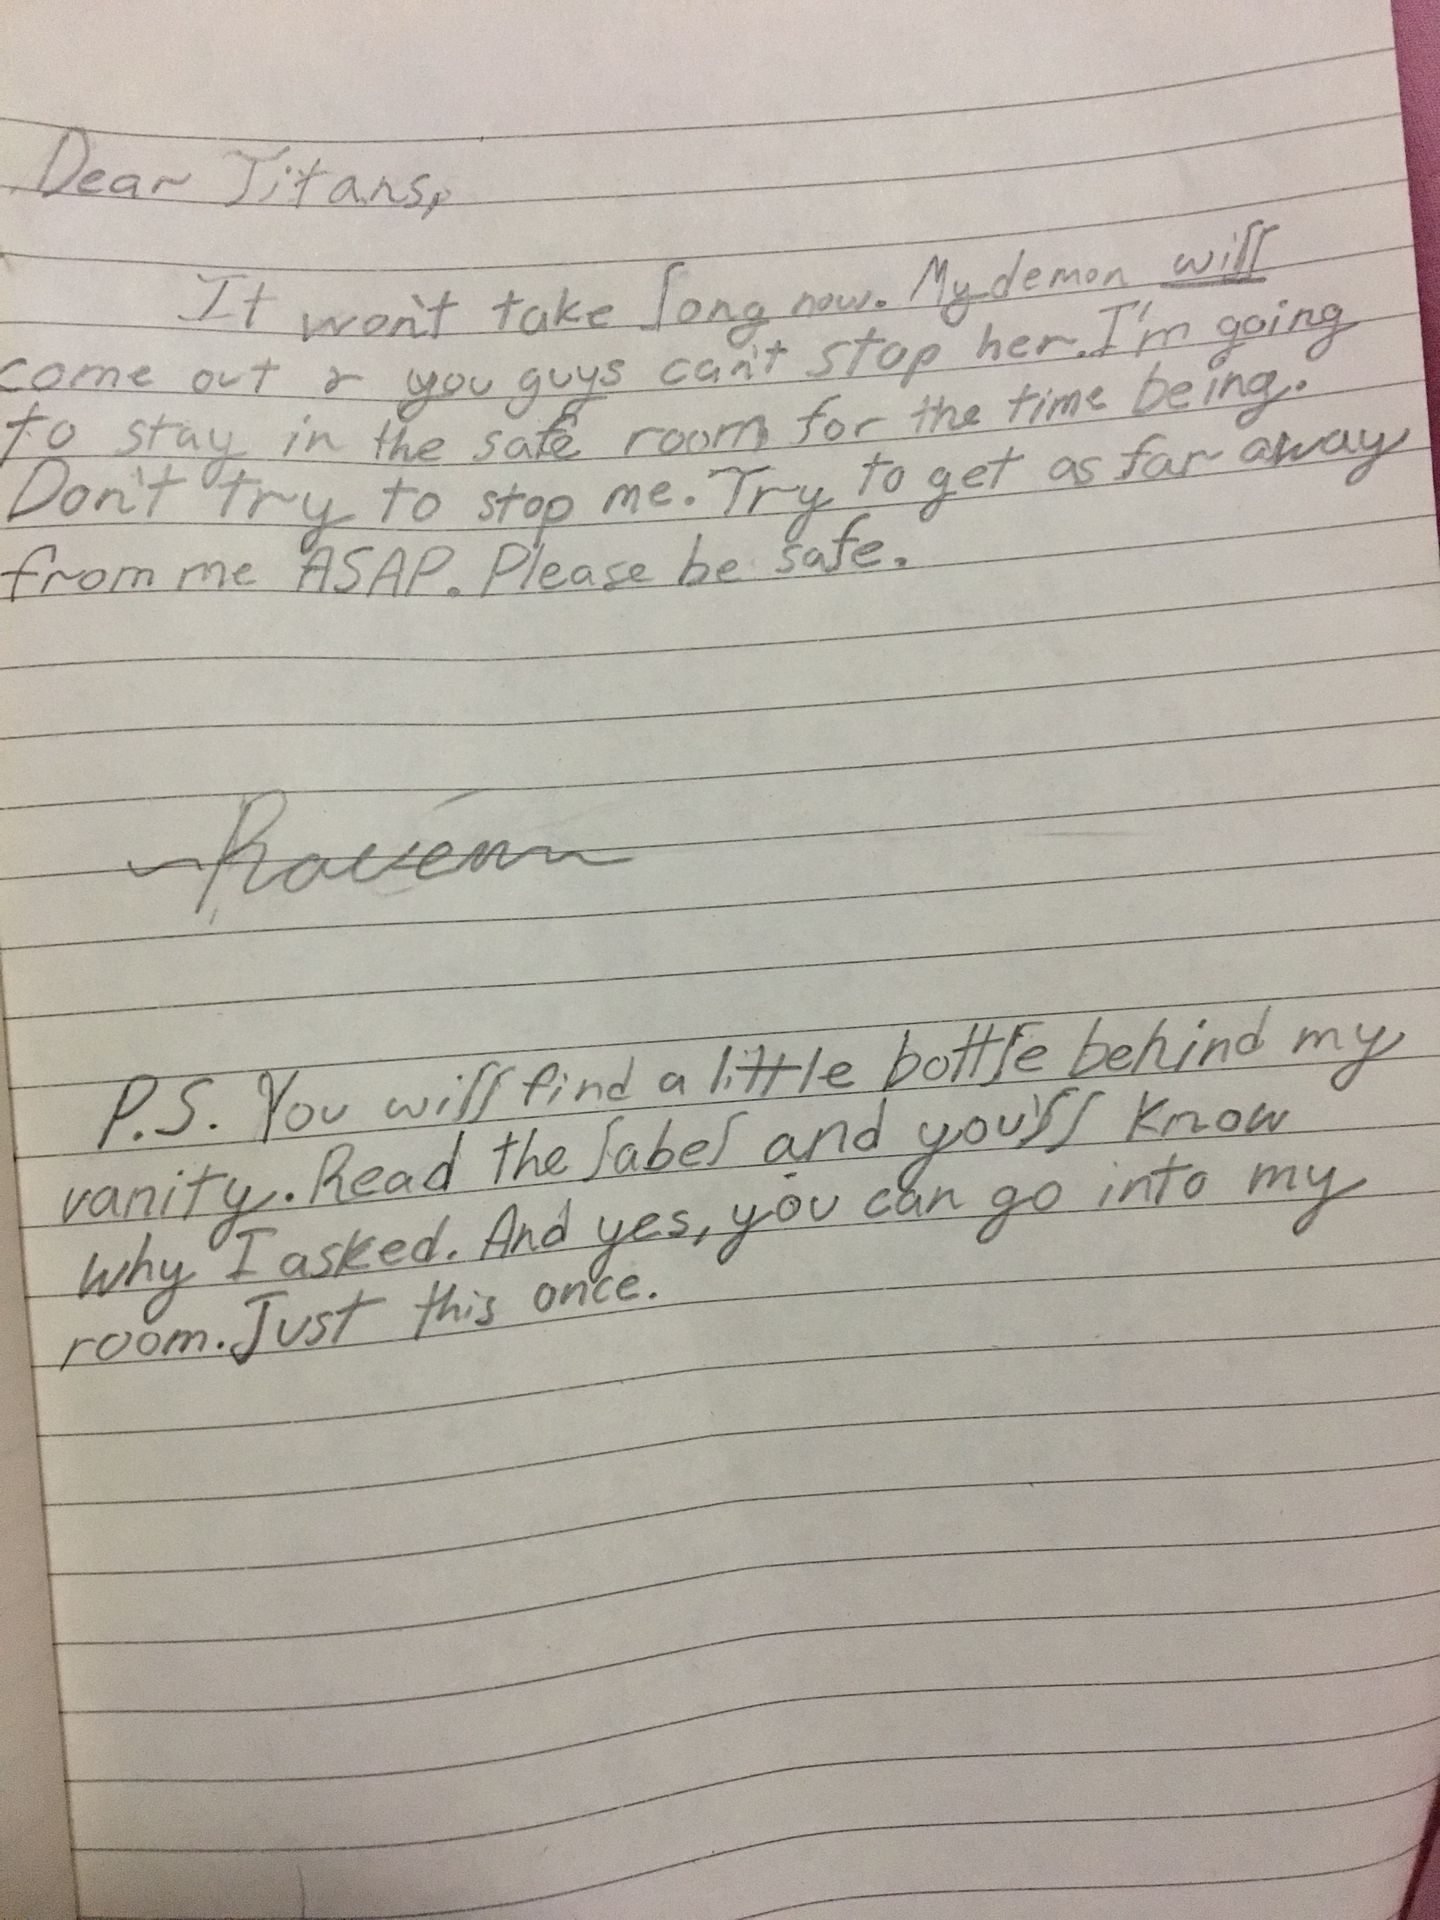 Dear Titans,
It won't take long now. My demon will
come out & you guys can't stop her. I'm going
to stay in the safe room for the time being.
Don't try to stop me. Try to get as far away
from me ASAP. Please be safe.
~Raven~
P.S. You will find a little bottle behind my
vanity. Read the label and you'll know
why I asked. And yes, you can go into my
room. Just this once.